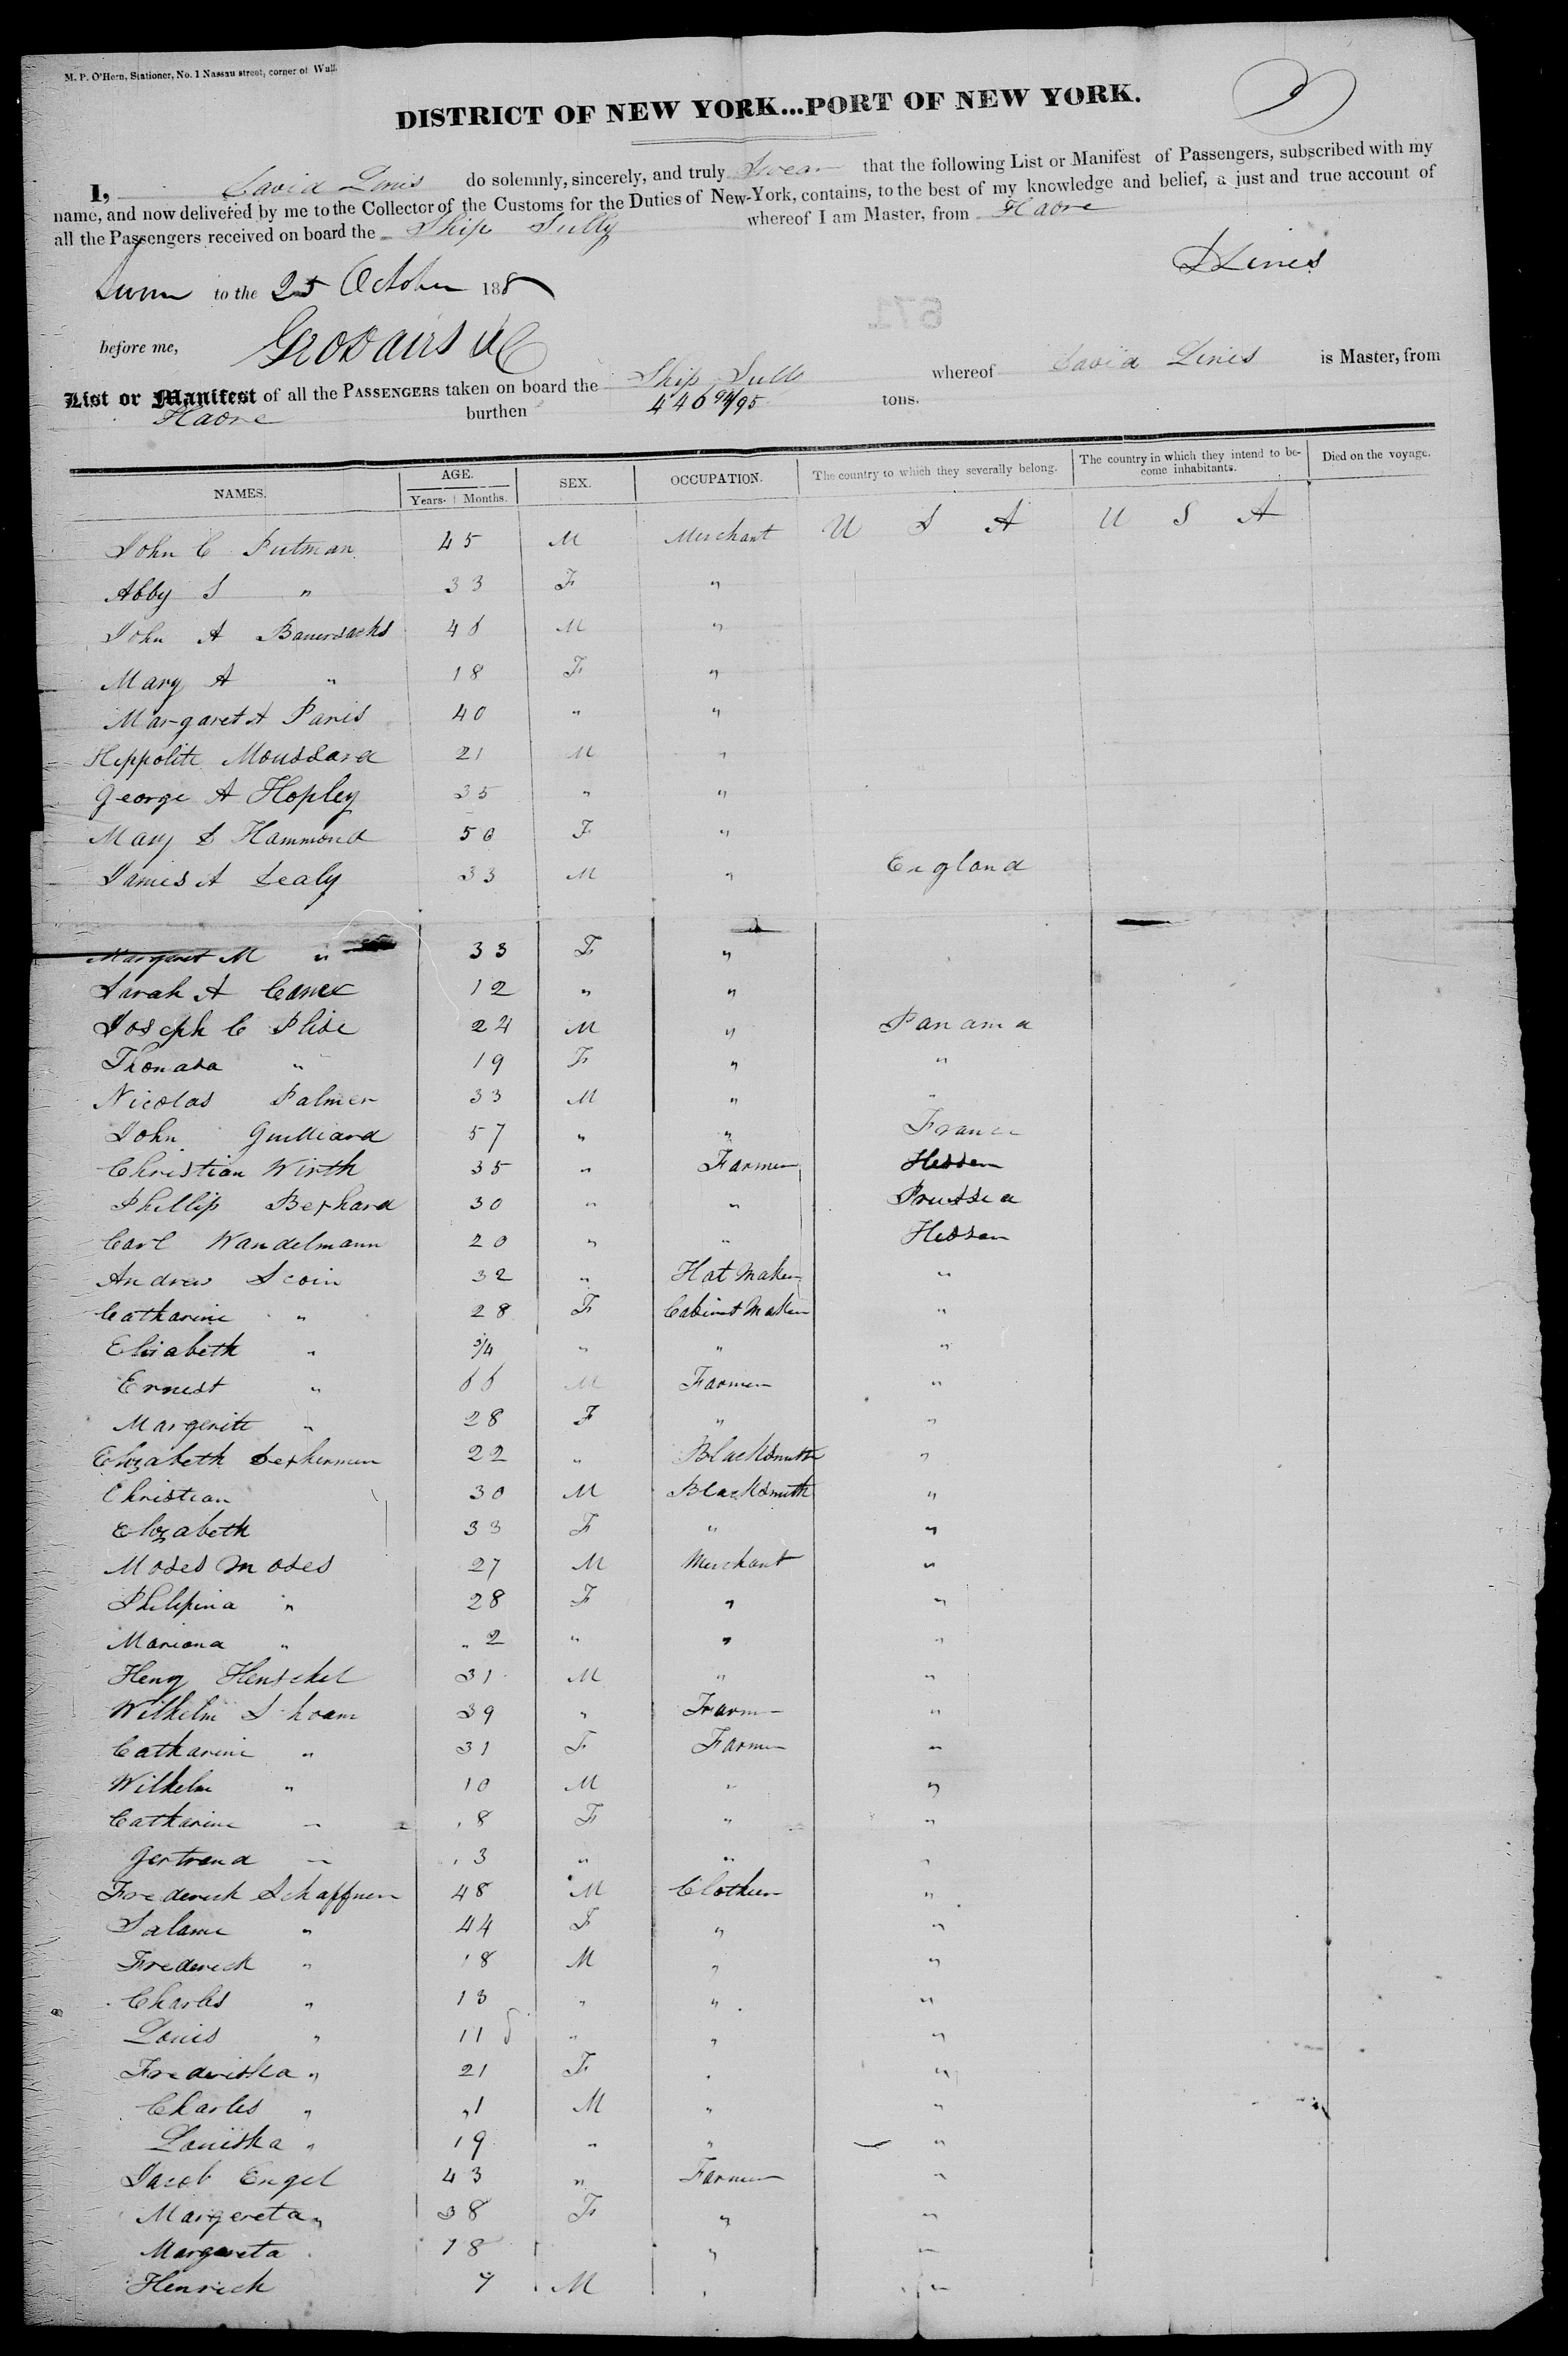 M. P. O'Hern, Stationer, No. 1 Nassau street, corner of Wall.
DISTRICT OF NEW YORK...PORT OF NEW YORK.
I, David Lines do solemnly, sincerely, and truly Swear that the following List or Manifest of Passengers, subscribed with my
name, and now delivered by me to the Collector of the Customs for the Duties of New-York, contains, to the best of my knowledge and belief, a just and true account of
all the Passengers received on board the Ship Sully whereof I am Master, from Havre
D Lines
Sworn to the 25 October 18
671
before me,
List or Manifest of all the PASSENGERS taken on board the Ship Sully whereof David Lines is Master, from
Havre burthen 446 94/95 tons.
NAMES. AGE. Years. Months. SEX. OCCUPATION. The country to which they severally belong. The country in which they intend to become inhabitants. Died on the voyage.
John C Putman 45 M Merchant U S A U S A
Abby S " 33 F "
John A Bauersachs 48 M "
Mary A " 18 F "
Margaret A Paris 40 " "
Hippolite Moussard 21 M "
George A Hopley 35 " "
Mary S Hammond 50 F "
James A Sealy 33 M " England
Margaret M " 33 F "
Sarah A 12 " "
Joseph C Plise 24 M " Panama
Thomasa " 19 F " "
Nicolas Palmer 33 M " "
John Guilliard 57 " " France
Christian Wirth 35 " Farmer Hessen
Phillip Bephard 30 " " Prussia
Carl Wandelmann 20 " " Hessen
Andrew Scoin 32 " Hat Maker "
Catharine " 28 F Cabinet Maker "
Elisabeth " 3/4 " " "
Ernest " M Farmer "
Margerite " 28 F " "
Elizabeth 22 " Blacksmith "
Christian 30 M Blacksmith "
Elizabeth 33 F " "
Moses Moses 27 M Merchant "
Philipina " 28 F " "
Mariana " " 2 " " "
Heny Henschel 31 M " "
Wilhelm 39 " Farm "
Catharine " 31 F Farmer "
Wilhelm " 10 M " "
Catharine " 8 F " "
Gertraud " 3 " " "
Frederick Schaffner 48 M Clothier "
Salame " 44 F " "
Frederick " 18 M " "
Charles " 13 " " "
Louis " 11 " " "
Frederiska " 21 F " "
Charles " " 1 M " "
Louiska " 19 " " "
Jacob Engel 43 " Farmer "
Margereta " 38 F " "
Margereta 18 " "
Henrich 7 M " "